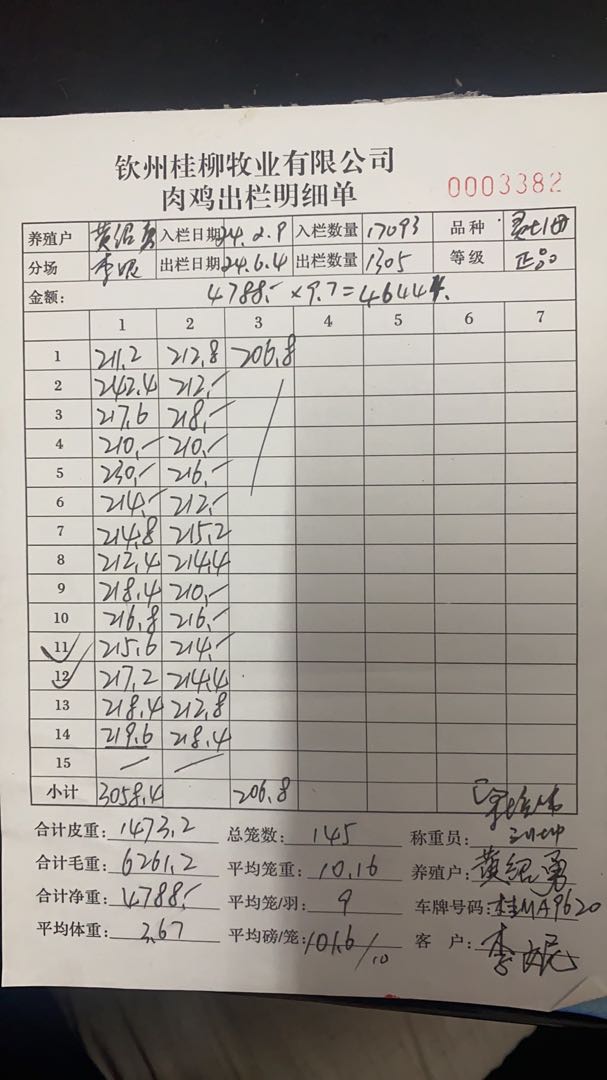 钦州桂柳牧业有限公司
肉鸡出栏明细单
0003382
养殖户 黄绍勇 入栏日期 24.2.9 入栏数量 17093 品种
分场 李妮 出栏日期 24.6.4 出栏数量 1305 等级 正品
金额: 4788.- ×9.7=46444.
1 2 3 4 5 6 7
1 211.2 212.8 206.8
2 242.4 212.-
3 217.6 218.-
4 210.- 210.-
5 230.- 216.-
6 214.- 212.-
7 214.8 215.2
8 212.4 214.4
9 218.4 210.-
10 216.8 216.-
11 215.6 214.-
12 217.2 214.4
13 218.4 212.8
14 219.6 218.4
15
小计 3058.4 206.8
合计皮重: 1473.2 总笼数: 145 称重员:
合计毛重: 6261.2 平均笼重: 10.16 养殖户: 黄绍勇
合计净重: 4788.- 平均笼/羽: 9 车牌号码: 桂MA9620
平均体重: 3.67 平均磅/笼: 101.6/10 客 户: 李妮